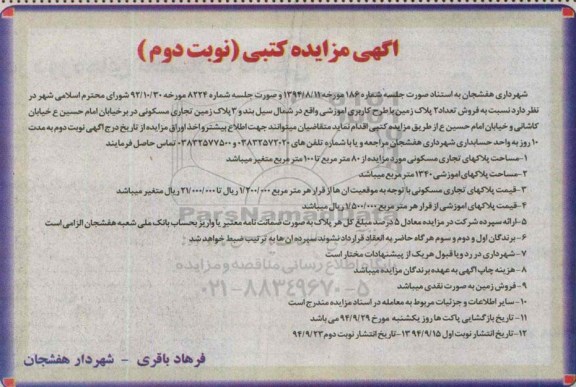 آگهی مزایده کتبی (نوبت دوم)
شهرداری هفشجان به استناد صورت جلسه شماره ۱۸۶ مورخه ۱۳۹۴/۸/۱۲ و صورت جلسه شماره ۸۲۲۴ مورخه ۹۲/۱۰/۳۰ شورای محترم اسلامی شهر در
نظر دارد نسبت به فروش تعداد ۲ پلاک زمین با طرح کاربری آموزشی واقع در شمال سیل بند و ۳ پلاک زمین تجاری مسکونی در بر خیابان امام حسین ع خیابان
کاشانی و خیابان امام حسین ع از طریق مزایده کتبی اقدام نماید متقاضیان میتوانند جهت اطلاع بیشتر و اخذ اوراق مزایده از تاریخ درج آگهی نوبت دوم به مدت
۱۰ روز به واحد حسابداری شهرداری هفشجان مراجعه و یا با شماره تلفن های ۰۳۸۳۲۵۷۲۰۲۰ و ۰۳۸۳۲۵۷۷۵۰۰ تماس حاصل فرمایند
۱-مساحت پلاکهای تجاری مسکونی مورد مزایده از ۸۰ متر مربع تا ۱۰۰ متر مربع متغیر میباشد
۲-مساحت پلاکهای آموزشی ۱۳۴۰ متر مربع میباشد
۳-قیمت پلاکهای تجاری مسکونی با توجه به موقعیت آن ها از قرار هر متر مربع ۱/۲۰۰/۰۰۰ ریال تا ۲۱/۰۰۰/۰۰۰ ریال متغیر میباشد
۴-قیمت پلاکهای آموزشی از قرار هر متر مربع ۱/۵۰۰/۰۰۰ ریال میباشد
۵-ارائه سپرده شرکت در مزایده معادل ۵ درصد مبلغ کل هر پلاک به صورت ضمانت نامه معتبر یا واریز بحساب بانک ملی شعبه هفشجان الزامی است
۶-برندگان اول و دوم و سوم هر گاه حاضر به انعقاد قرارداد نشوند سپرده آن ها به ترتیب ضبط خواهد شد
۷-شهرداری در رد و یا قبول هر یک از پیشنهادات مختار است
۸-هزینه چاپ آگهی به عهده برندگان مزایده میباشد
۹-فروش زمین به صورت نقدی میباشد
۱۰-سایر اطلاعات و جزئیات مربوط به معامله در اسناد مزایده مندرج است
۱۱-تاریخ بازگشایی پاکت ها روز یکشنبه مورخ ۹۴/۹/۲۹ می باشد
۱۲-تاریخ انتشار نوبت اول ۱۳۹۴/۹/۱۵-تاریخ انتشار نوبت دوم ۹۴/۹/۲۳
فرهاد باقری - شهردار هفشجان
ParsNamadData
پایگاه اطلاع رسانی مناقصه و مزایده
۰۲۱-۸۸۳۴۹۶۷۰-۵